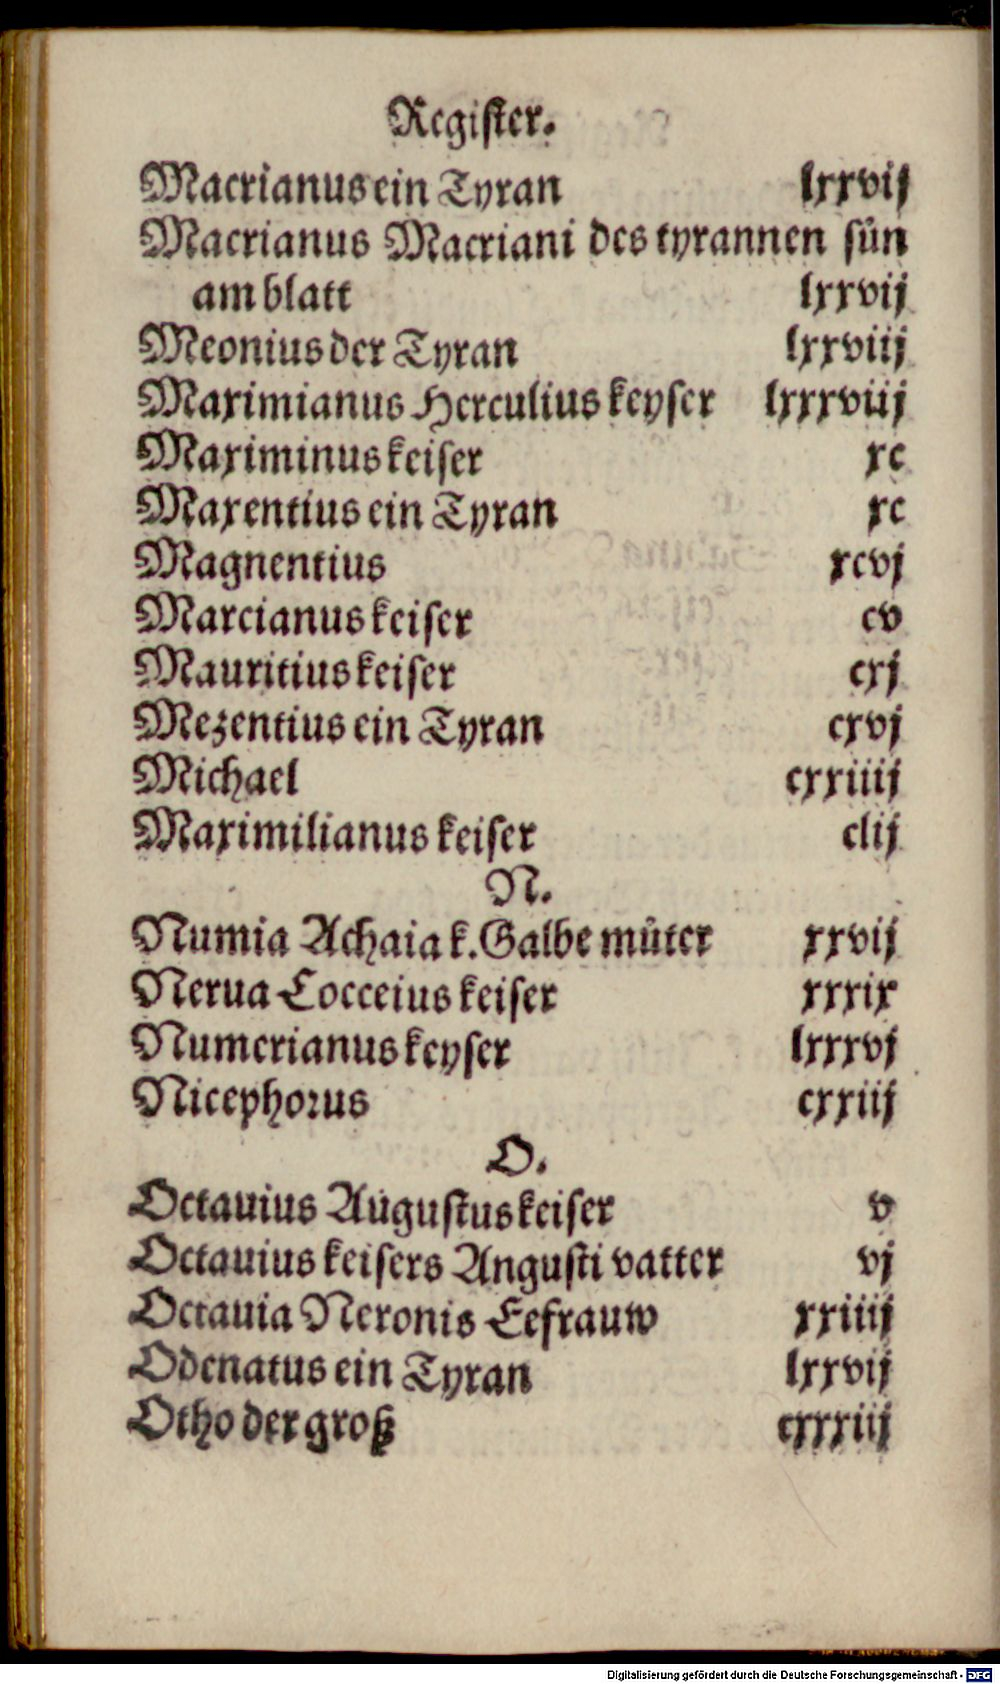 Register.
Macrianus ein Tyran lxxvij
Macrianus Macriani des tyrannen sün
am blatt lxxvij
Meonius der Tyran lxxviij
Maximianus Herculius keyser lxxxviij
Maximinus keiser xc
Maxentius ein Tyran xc
Magnentius xcvj
Marcianus keiser cv
Mauritius keiser cxj
Mezentius ein Tyran cxvj
Michael cxxiiij
Maximilianus keiser clij
N.
Numia Achaia k. Galbe můter xxvij
Nerua Cocceius keiser xxxix
Numerianus keyser lxxxvj
Nicephorus cxxiij
O.
Octauius Augustus keiser v
Octauius keisers Angusti vatter vj
Octauia Neronis Eefrauw xxiiij
Odenatus ein Tyran lxxvij
Otho der groß cxxxiij
Digitalisierung gefördert durch die Deutsche Forschungsgemeinschaft - DFG